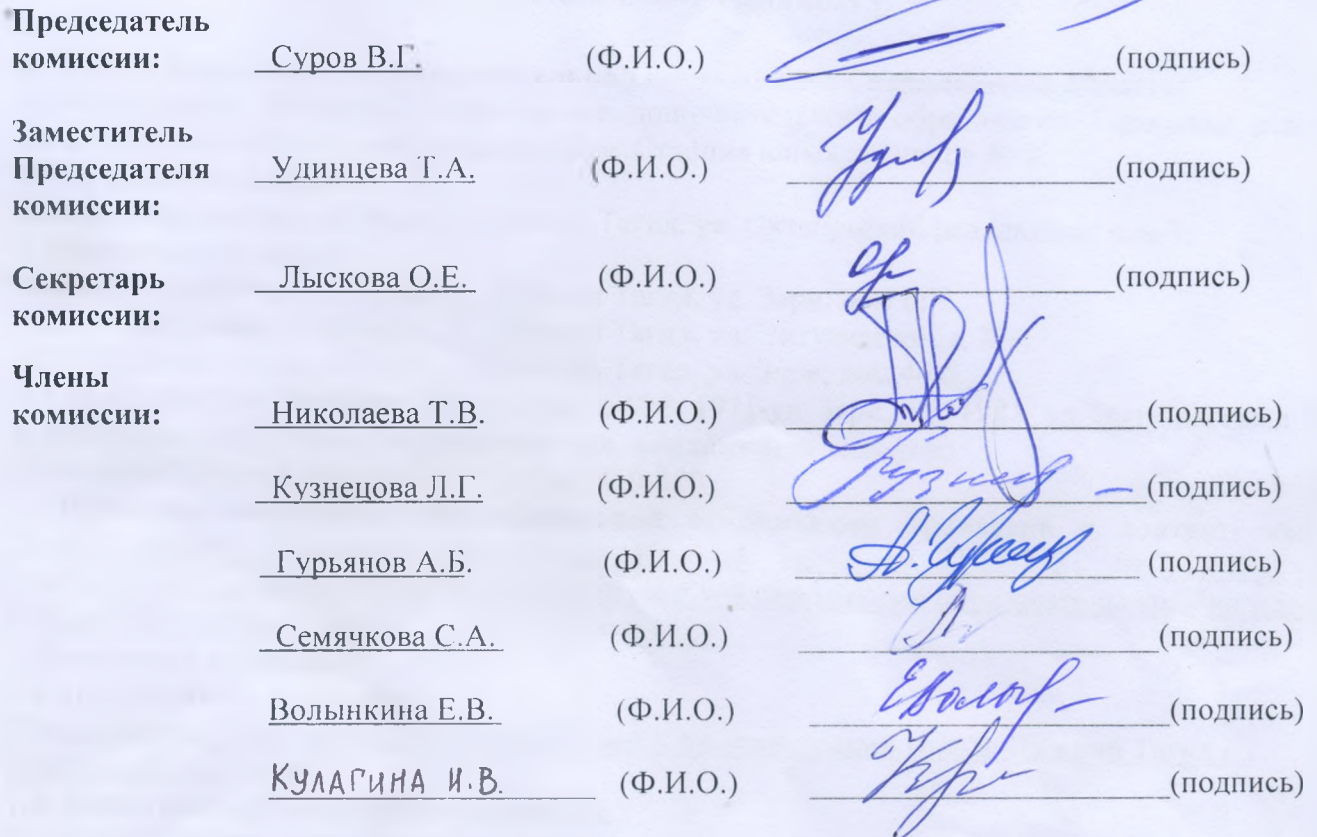 Председатель
комиссии: Суров В.Г. (Ф.И.О.) (подпись)
Заместитель
Председателя Удинцева Т.А. (Ф.И.О.) (подпись)
комиссии:
Секретарь Лыскова О.Е. (Ф.И.О.) (подпись)
комиссии:
Члены
комиссии: Николаева Т.В. (Ф.И.О.) (подпись)
Кузнецова Л.Г. (Ф.И.О.) (подпись)
Гурьянов А.Б. (Ф.И.О.) (подпись)
Семячкова С.А. (Ф.И.О.) (подпись)
Волынкина Е.В. (Ф.И.О.) (подпись)
КУЛАГИНА И.В. (Ф.И.О.) (подпись)